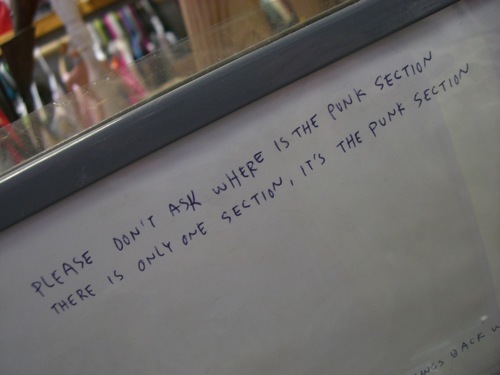 PLEASE DON'T ASK WHERE IS THE PUNK SECTION
THERE IS ONLY ONE SECTION, IT'S THE PUNK SECTION
BACK